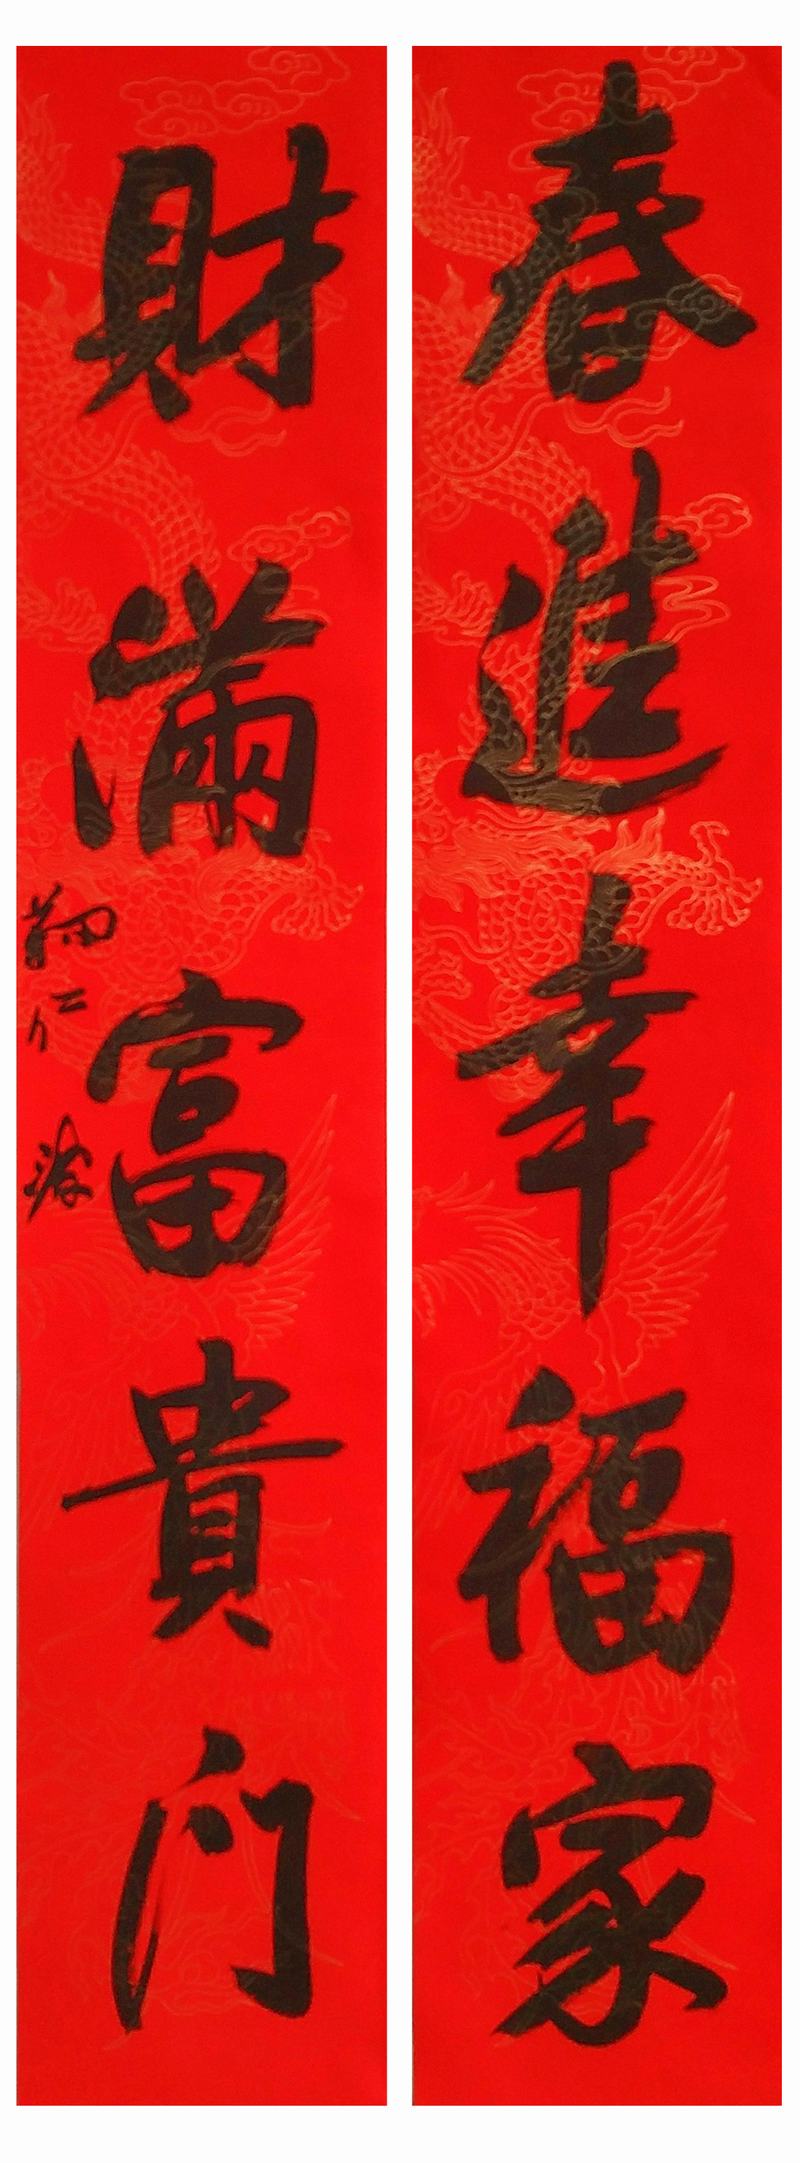 春進幸福家
財滿富貴门